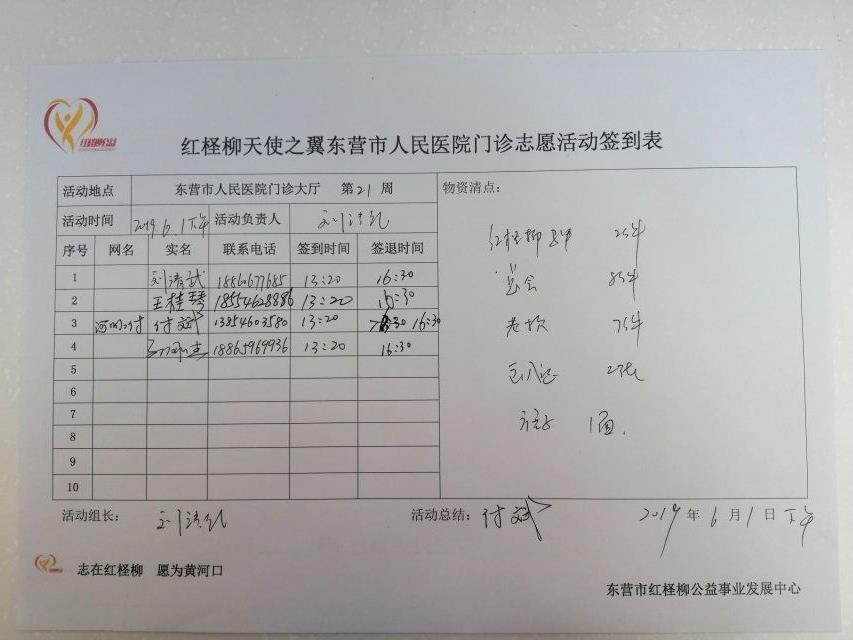 红柽柳天使之翼东营市人民医院门诊志愿活动签到表
活动地点 东营市人民医院门诊大厅 第21周 物资清点:
活动时间 2019.6.1下午 活动负责人
序号 网名 实名 联系电话 签到时间 签退时间
1 刘清武 18860677685 13:20 16:30
2 王桂琴 18554628886 13:20 16:30
3 付斌 13854603580 13:20 16:30
4 18865969936 13:20 16:30
5
6
7
8
9
10
红柽柳
总会
1面.
活动组长:
活动总结: 付斌
2019年6月1日下午
志在红柽柳 愿为黄河口
东营市红柽柳公益事业发展中心